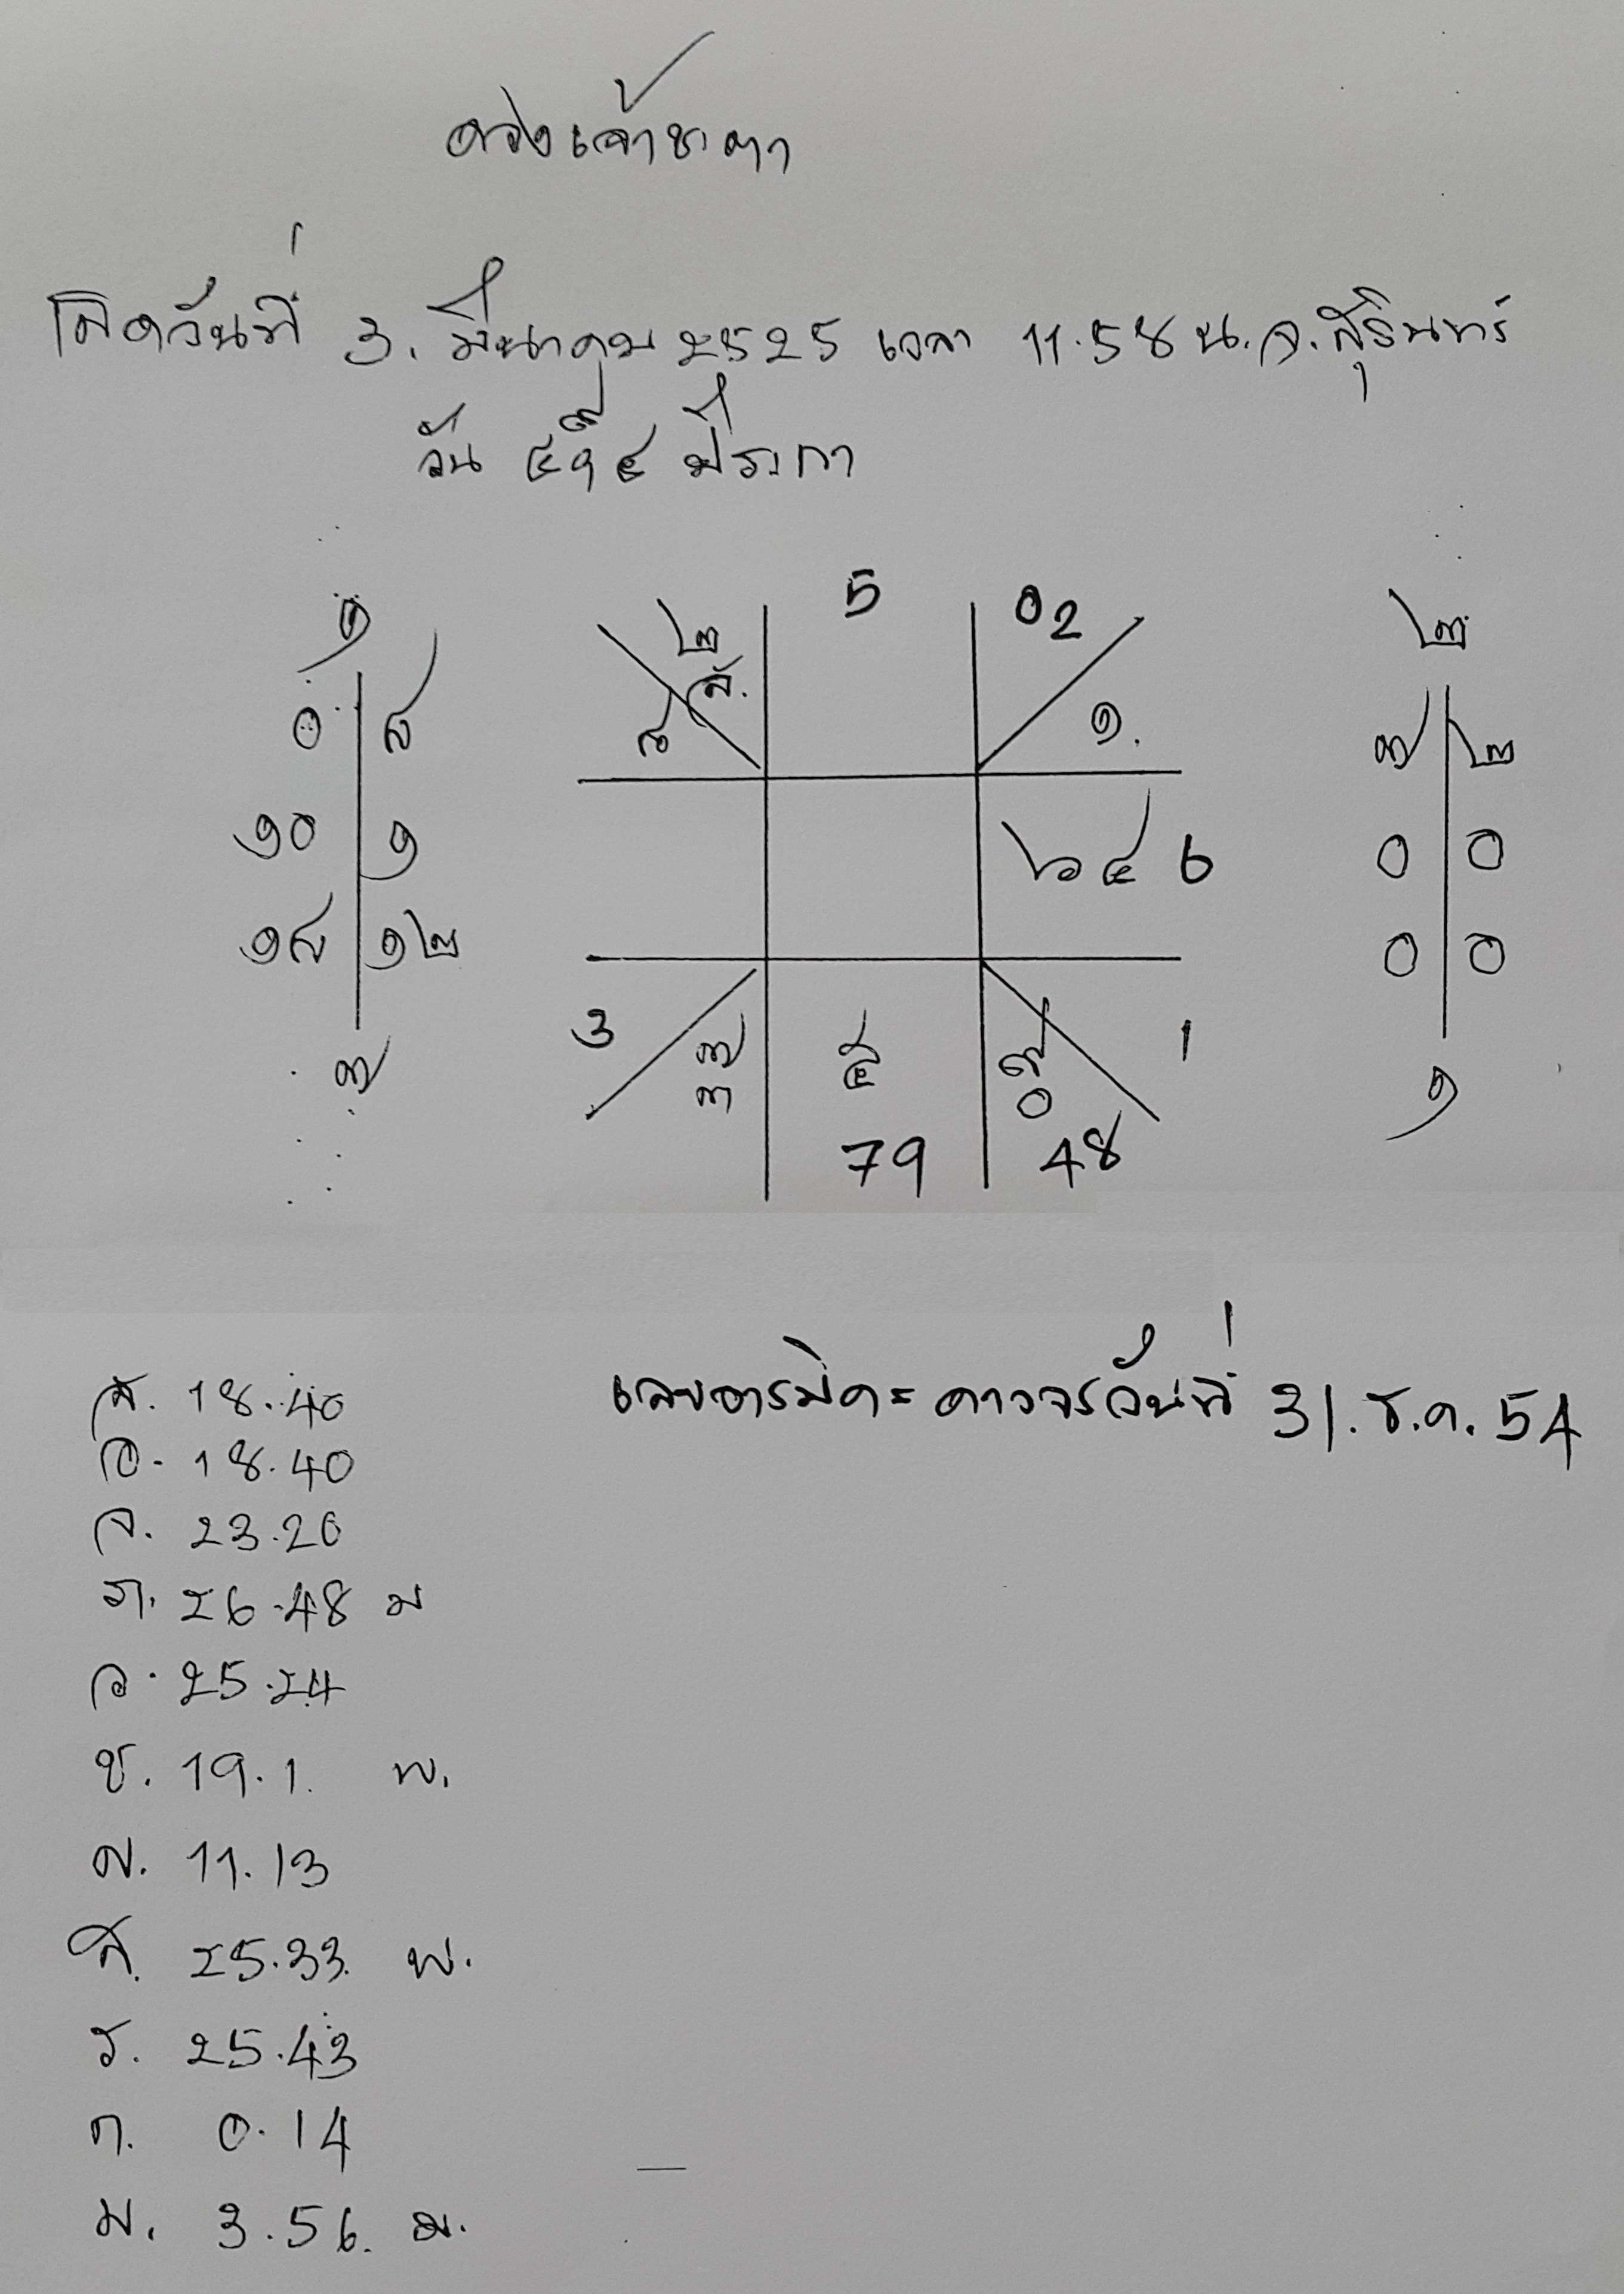 ดวงเจ้าชะตา
เกิดวันที่ 3. มีนาคม 2525 เวลา 11.58 น. จ.สุรินทร์
วัน ๔ ๘ ๑ ๔ ปีระกา
๑
๐ ๘
๑๐ ๑
๑๘ ๑๒
๗
๒ 5 ๐2
ลั.
๘ ๑.
๖ ๔ 6
3 ๗ ๕ ๙ 1
๓ ๐
79 48
๒
๗ ๒
๐ ๐
๐ ๐
๑
เลขอารบิคะ ดาวจรวันที่ 31. ธ.ค. 54
ลั. 18.40
อ. 18.40
จ. 23.20
ภ. 26.48 ม
ว. 25.24
ช. 19.1. พ.
ศ. 25.33. พ.
ส. 11.13
ร. 25.43
ก. 0.14
ม. 3.56. ม.